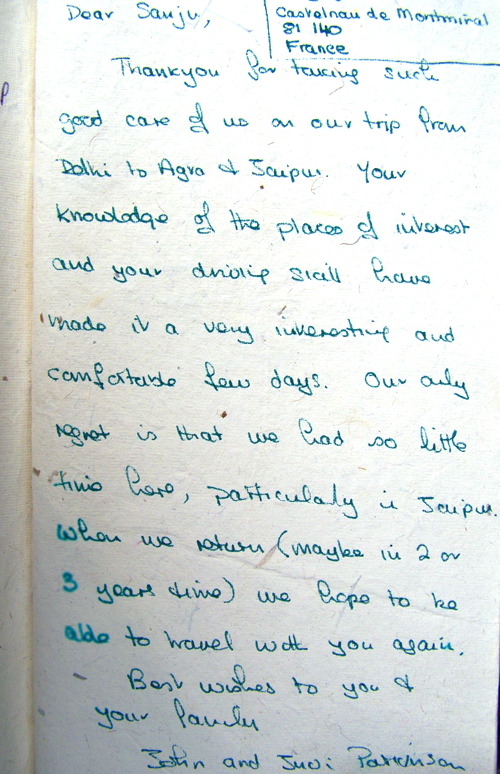 Dear Sanju,
Castelnau de Montmiral
81 140
France
Thankyou for taking such
good care of us on our trip from
Delhi to Agra & Jaipur. Your
knowledge of the places of interest
and your driving skill have
made it a very interesting and
comfortable few days. Our only
regret is that we had so little
time here, particularly in Jaipur.
When we return (maybe in 2 or
3 years time) we hope to be
able to travel with you again.
Best wishes to you &
your family
John and Parkinson